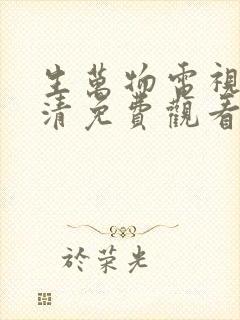 生萬物電視
清免費觀看
於荣光